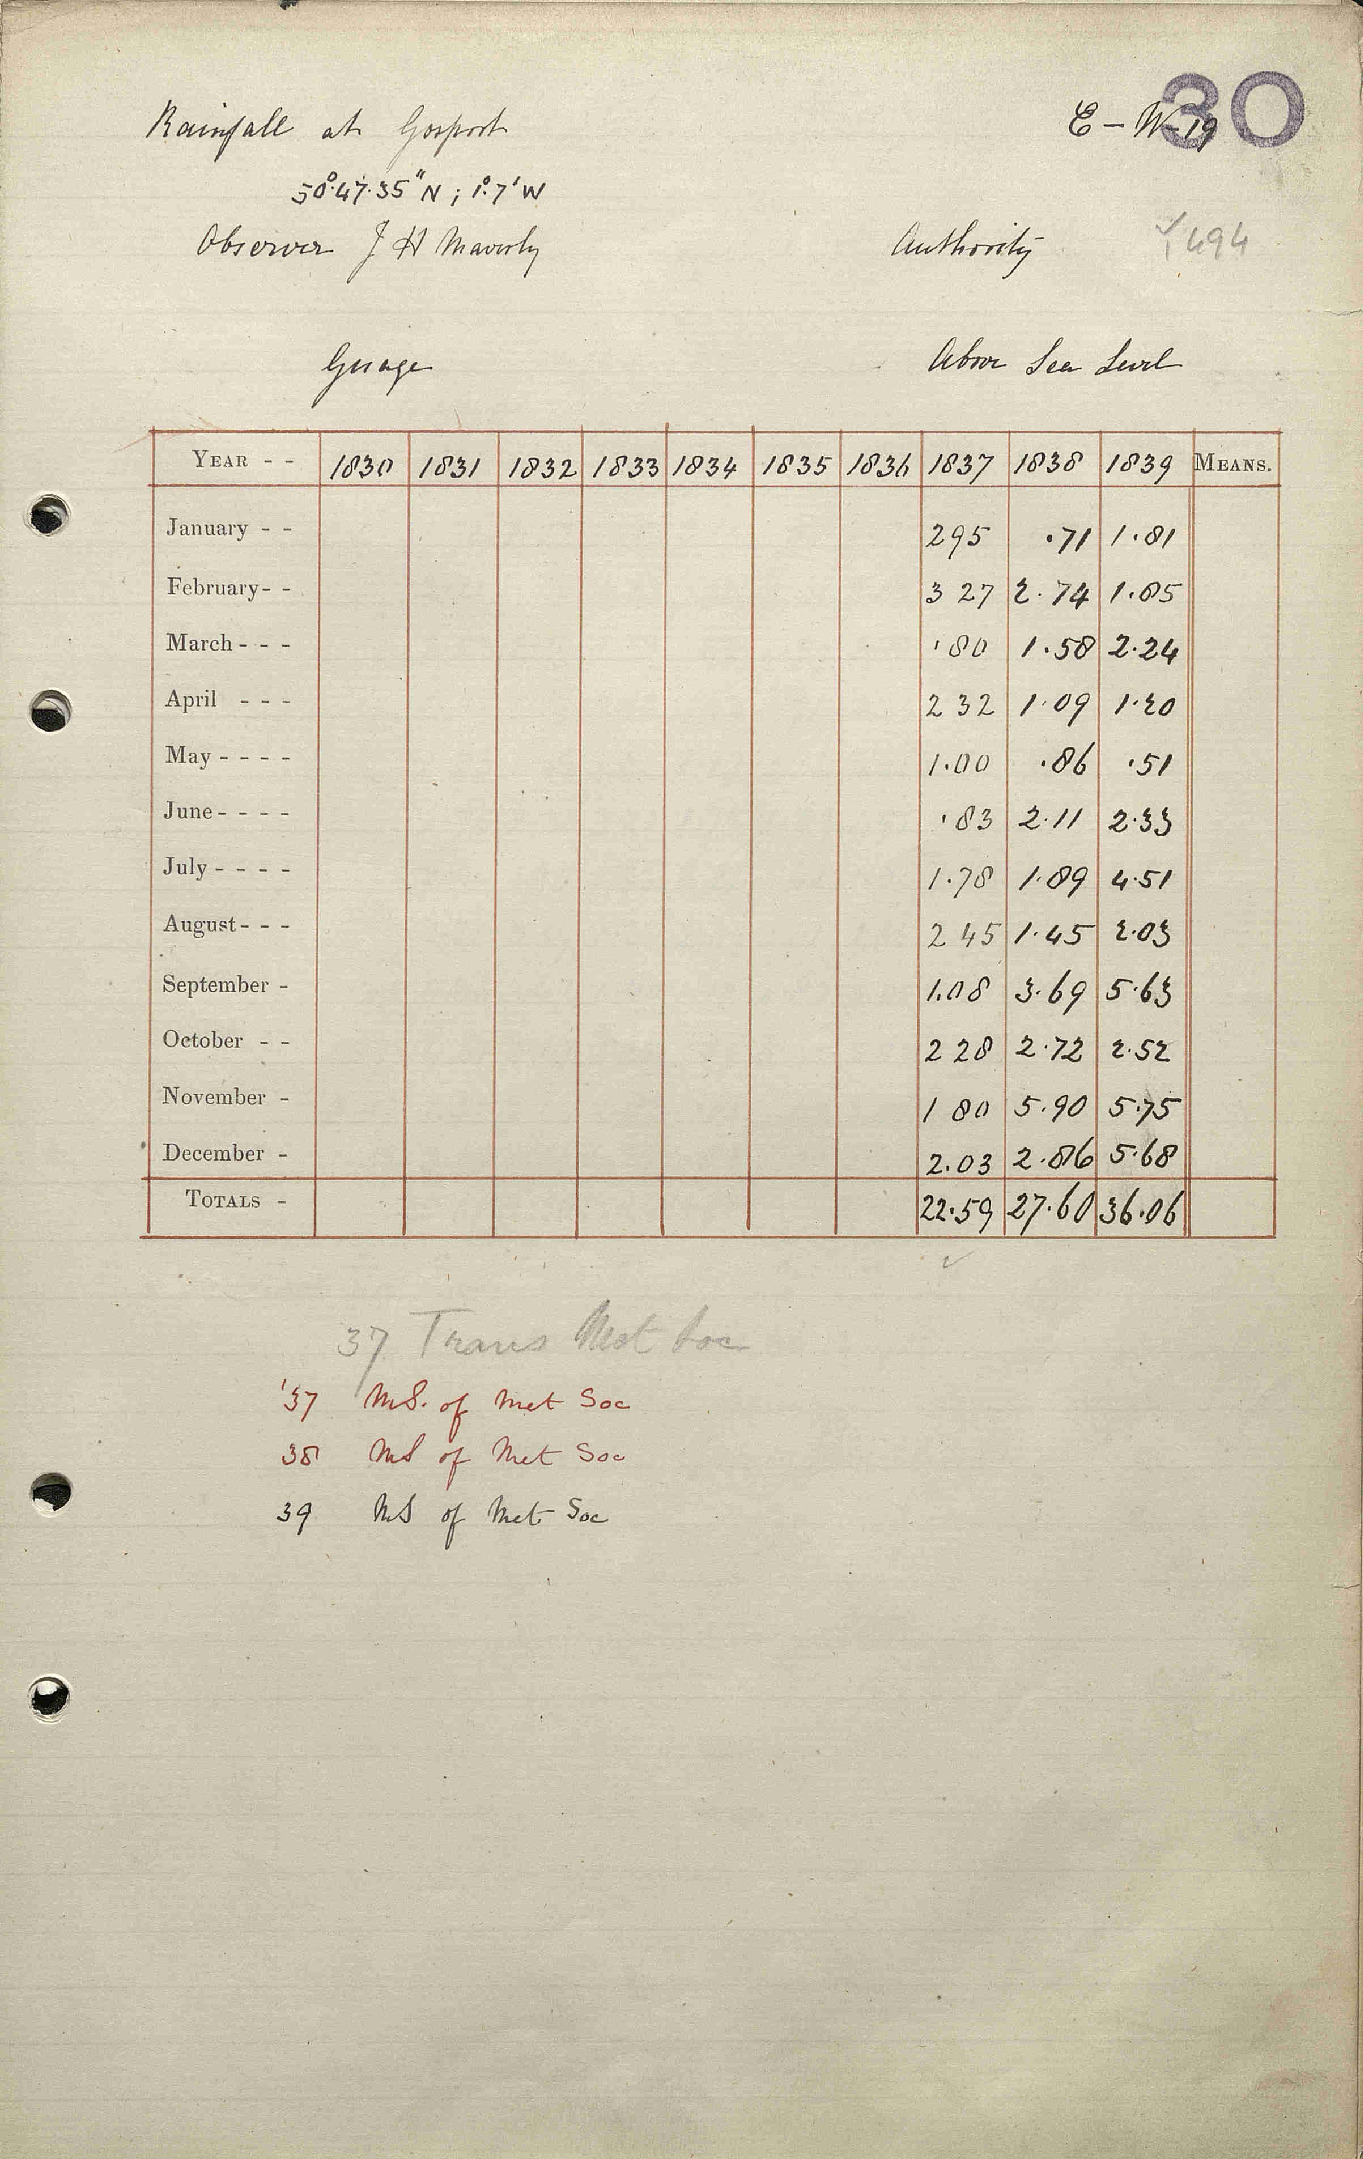 30
Rainfall at Gosport E - W - 19
50°.47.35"N ; 1°.7'W
Observer J H Maverly Authority 494
Guage Above Sea Level
YEAR - - 1830 1831 1832 1833 1834 1835 1836 1837 1838 1839 MEANS.
January - - 295 .71 1.81
February- - 3 27 2.74 1.85
March - - - .80 1.58 2.24
April - - - 2 32 1.09 1.20
May - - - - 1.00 .86 .51
June - - - - .83 2.11 2.33
July - - - - 1.78 1.89 4.51
August - - - 2 45 1.45 2.03
September - 1.08 3.69 5.63
October - - 2 28 2.72 2.52
November - 1 80 5.90 5.75
December - 2.03 2.86 5.68
TOTALS - 22.59 27.60 36.06
37 Trans Met Soc
'37 MS. of Met Soc
38 MS of Met Soc
39 MS of Met Soc